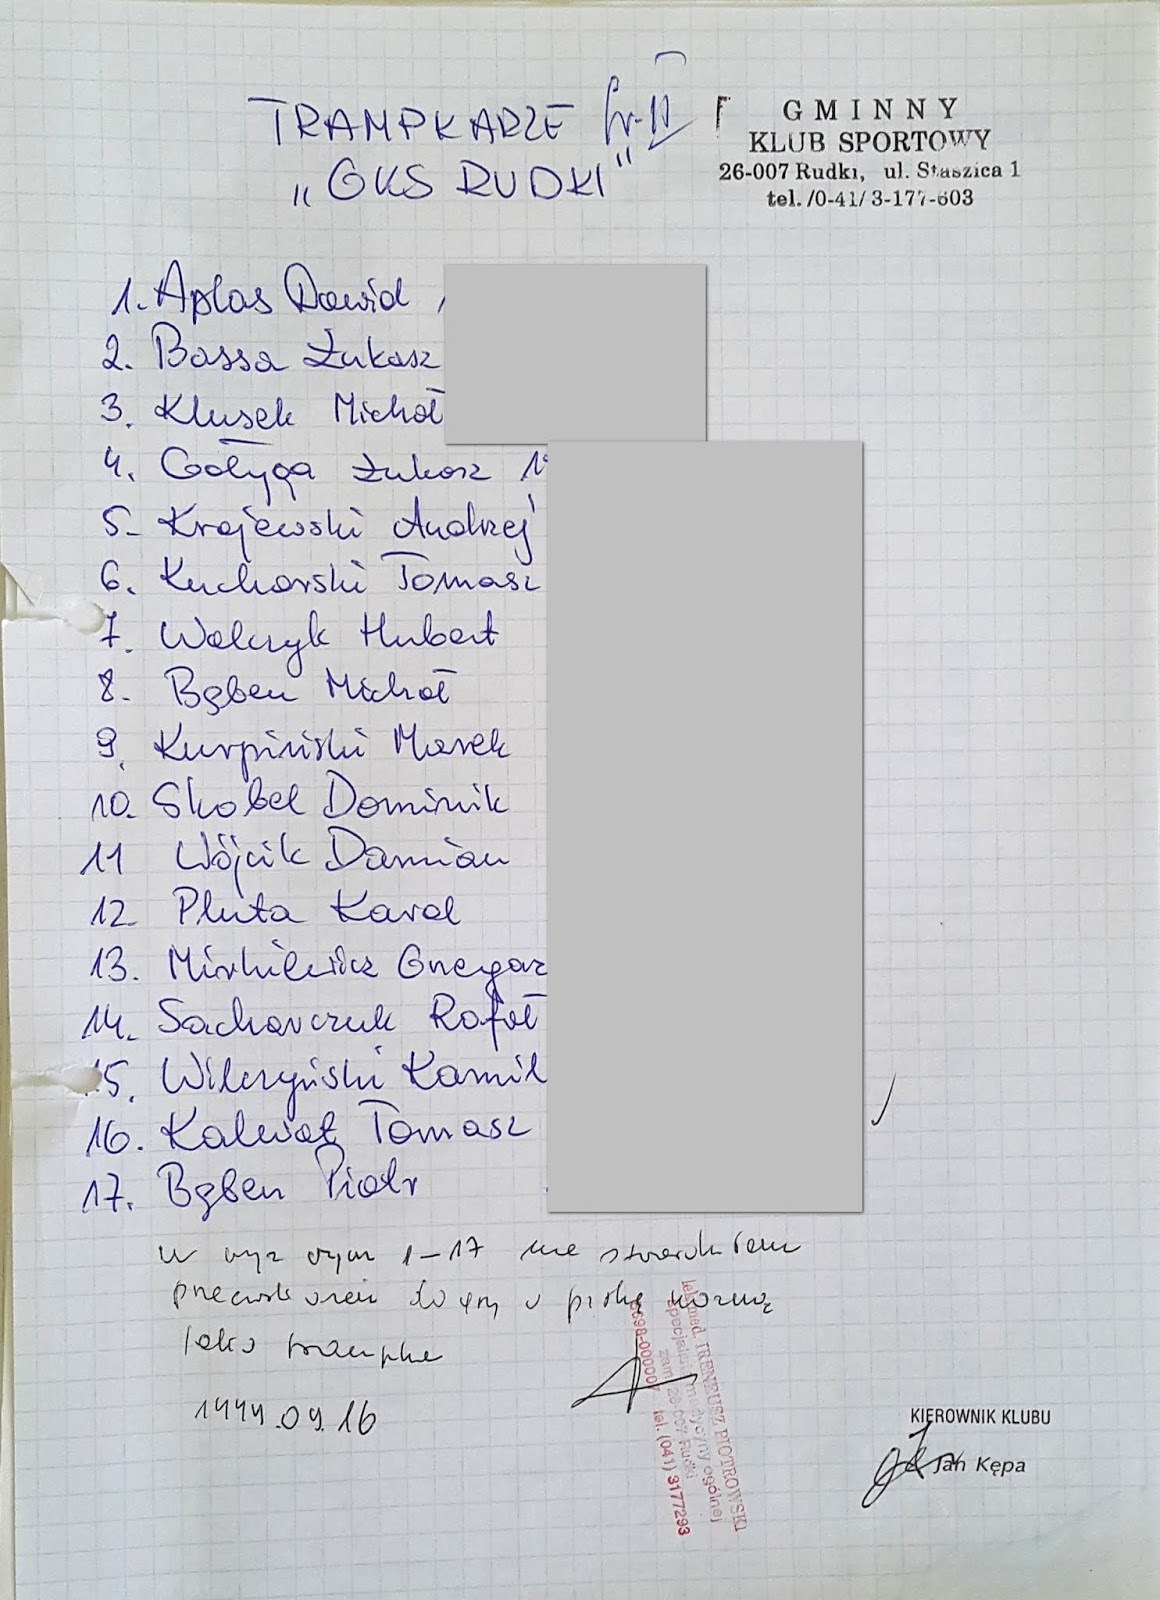 TRAMPKARZE Gr. II
„GKS RUDKI"
GMINNY
KLUB SPORTOWY
26-007 Rudki, ul. Staszica 1
tel. /0-41/ 3-177-603
1. Aplas Dawid
2. Bassa Łukasz
3. Klusek Michał
4. Gołyga Łukasz 19
5. Krajewski Andrzej
6. Kucharski Tomasz
7. Walczyk Hubert
8. Bąben Michał
9. Kurpiński Marek
10. Skobel Dominik
11 Wójcik Damian
12. Pluta Karol
13. Mirkiewicz Grzegorz
14. Sacharczuk Rafał
15. Wilczyński Kamil
16. Kalwat Tomasz
17. Bąben Piotr
W wyż wym 1-17 nie stwierdziłem
przeciwskazań do gry w piłkę nożną
jako trampkarze
1999.09.16
lek. med. IRENEUSZ PIOTROWSKI
specjalista medycyny ogólnej
zam. 26-007 Rudki
tel. (041) 3177293
KIEROWNIK KLUBU
Jan Kępa